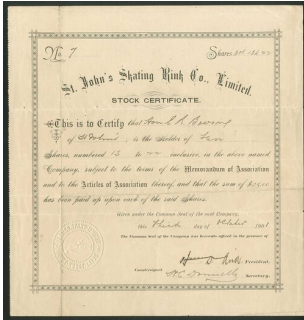 No. 7
Shares
St. John's Skating Rink Co., Limited.
STOCK CERTIFICATE.
This is to Certify that Hon. E. R. Bowring
of St. John's, is the Holder of Ten
Shares, numbered 13 to 22 inclusive, in the above named
Company, subject to the terms of the Memorandum of Association
and to the Articles of Association thereof; and that the sum of $25.00
has been paid up upon each of the said Shares.
Given under the Common Seal of the said Company,
this Third day of October
The Common Seal of the Company was hereunto affixed in the presence of
President.
Countersigned
Secretary.